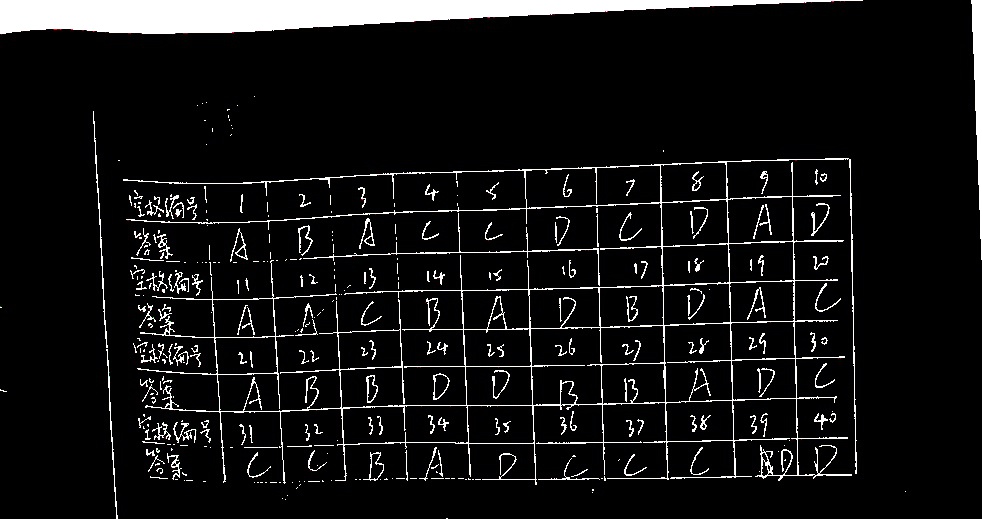 空格编号 1 2 3 4 5 6 7 8 9 10
答案 A B A C C D C D A D
空格编号 11 12 13 14 15 16 17 18 19 20
答案 A A C B A D B D A C
空格编号 21 22 23 24 25 26 27 28 29 30
答案 A B B D D B B A D C
空格编号 31 32 33 34 35 36 37 38 39 40
答案 C C B A D C C C D D